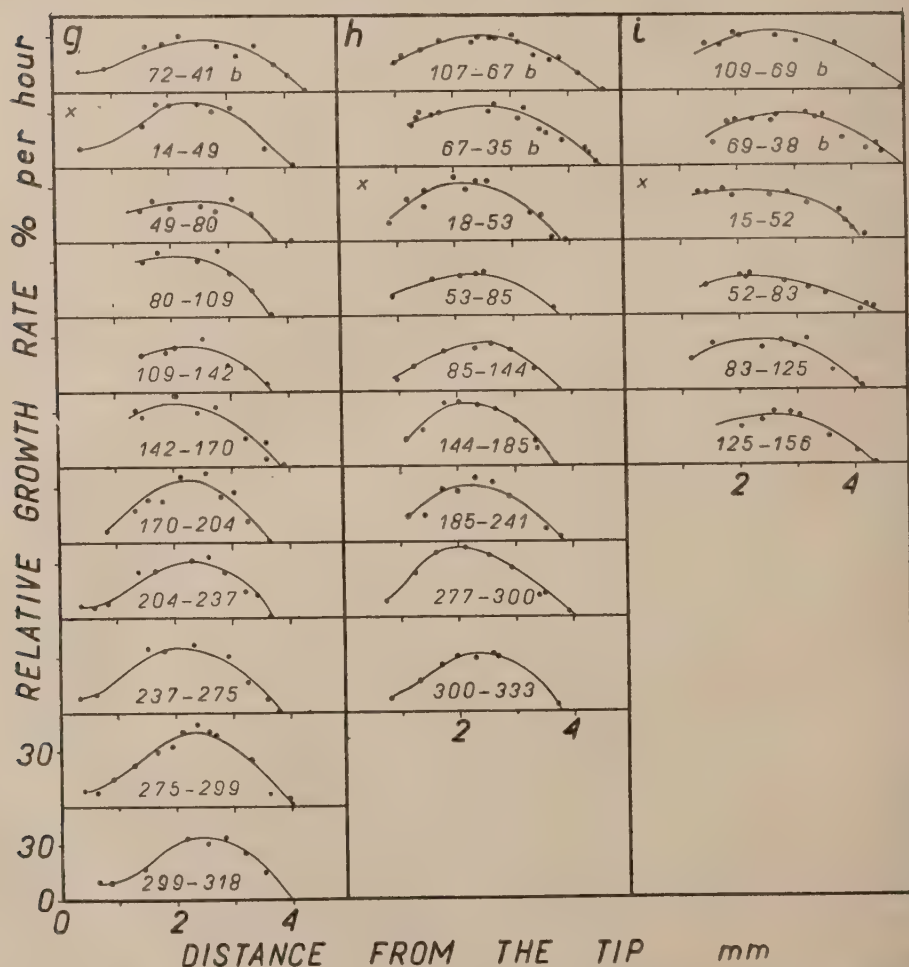 RELATIVE GROWTH RATE % per hour
g
72-41 b
x
14-49
49-80
80-109
109-142
142-170
170-204
204-237
237-275
30
275-299
30
299-318
0
0 2 4
h
107-67 b
67-35 b
x
18-53
53-85
85-144
144-185
185-241
277-300
300-333
2 4
i
109-69 b
69-38 b
x
15-52
52-83
83-125
125-156
2 4
DISTANCE FROM THE TIP mm